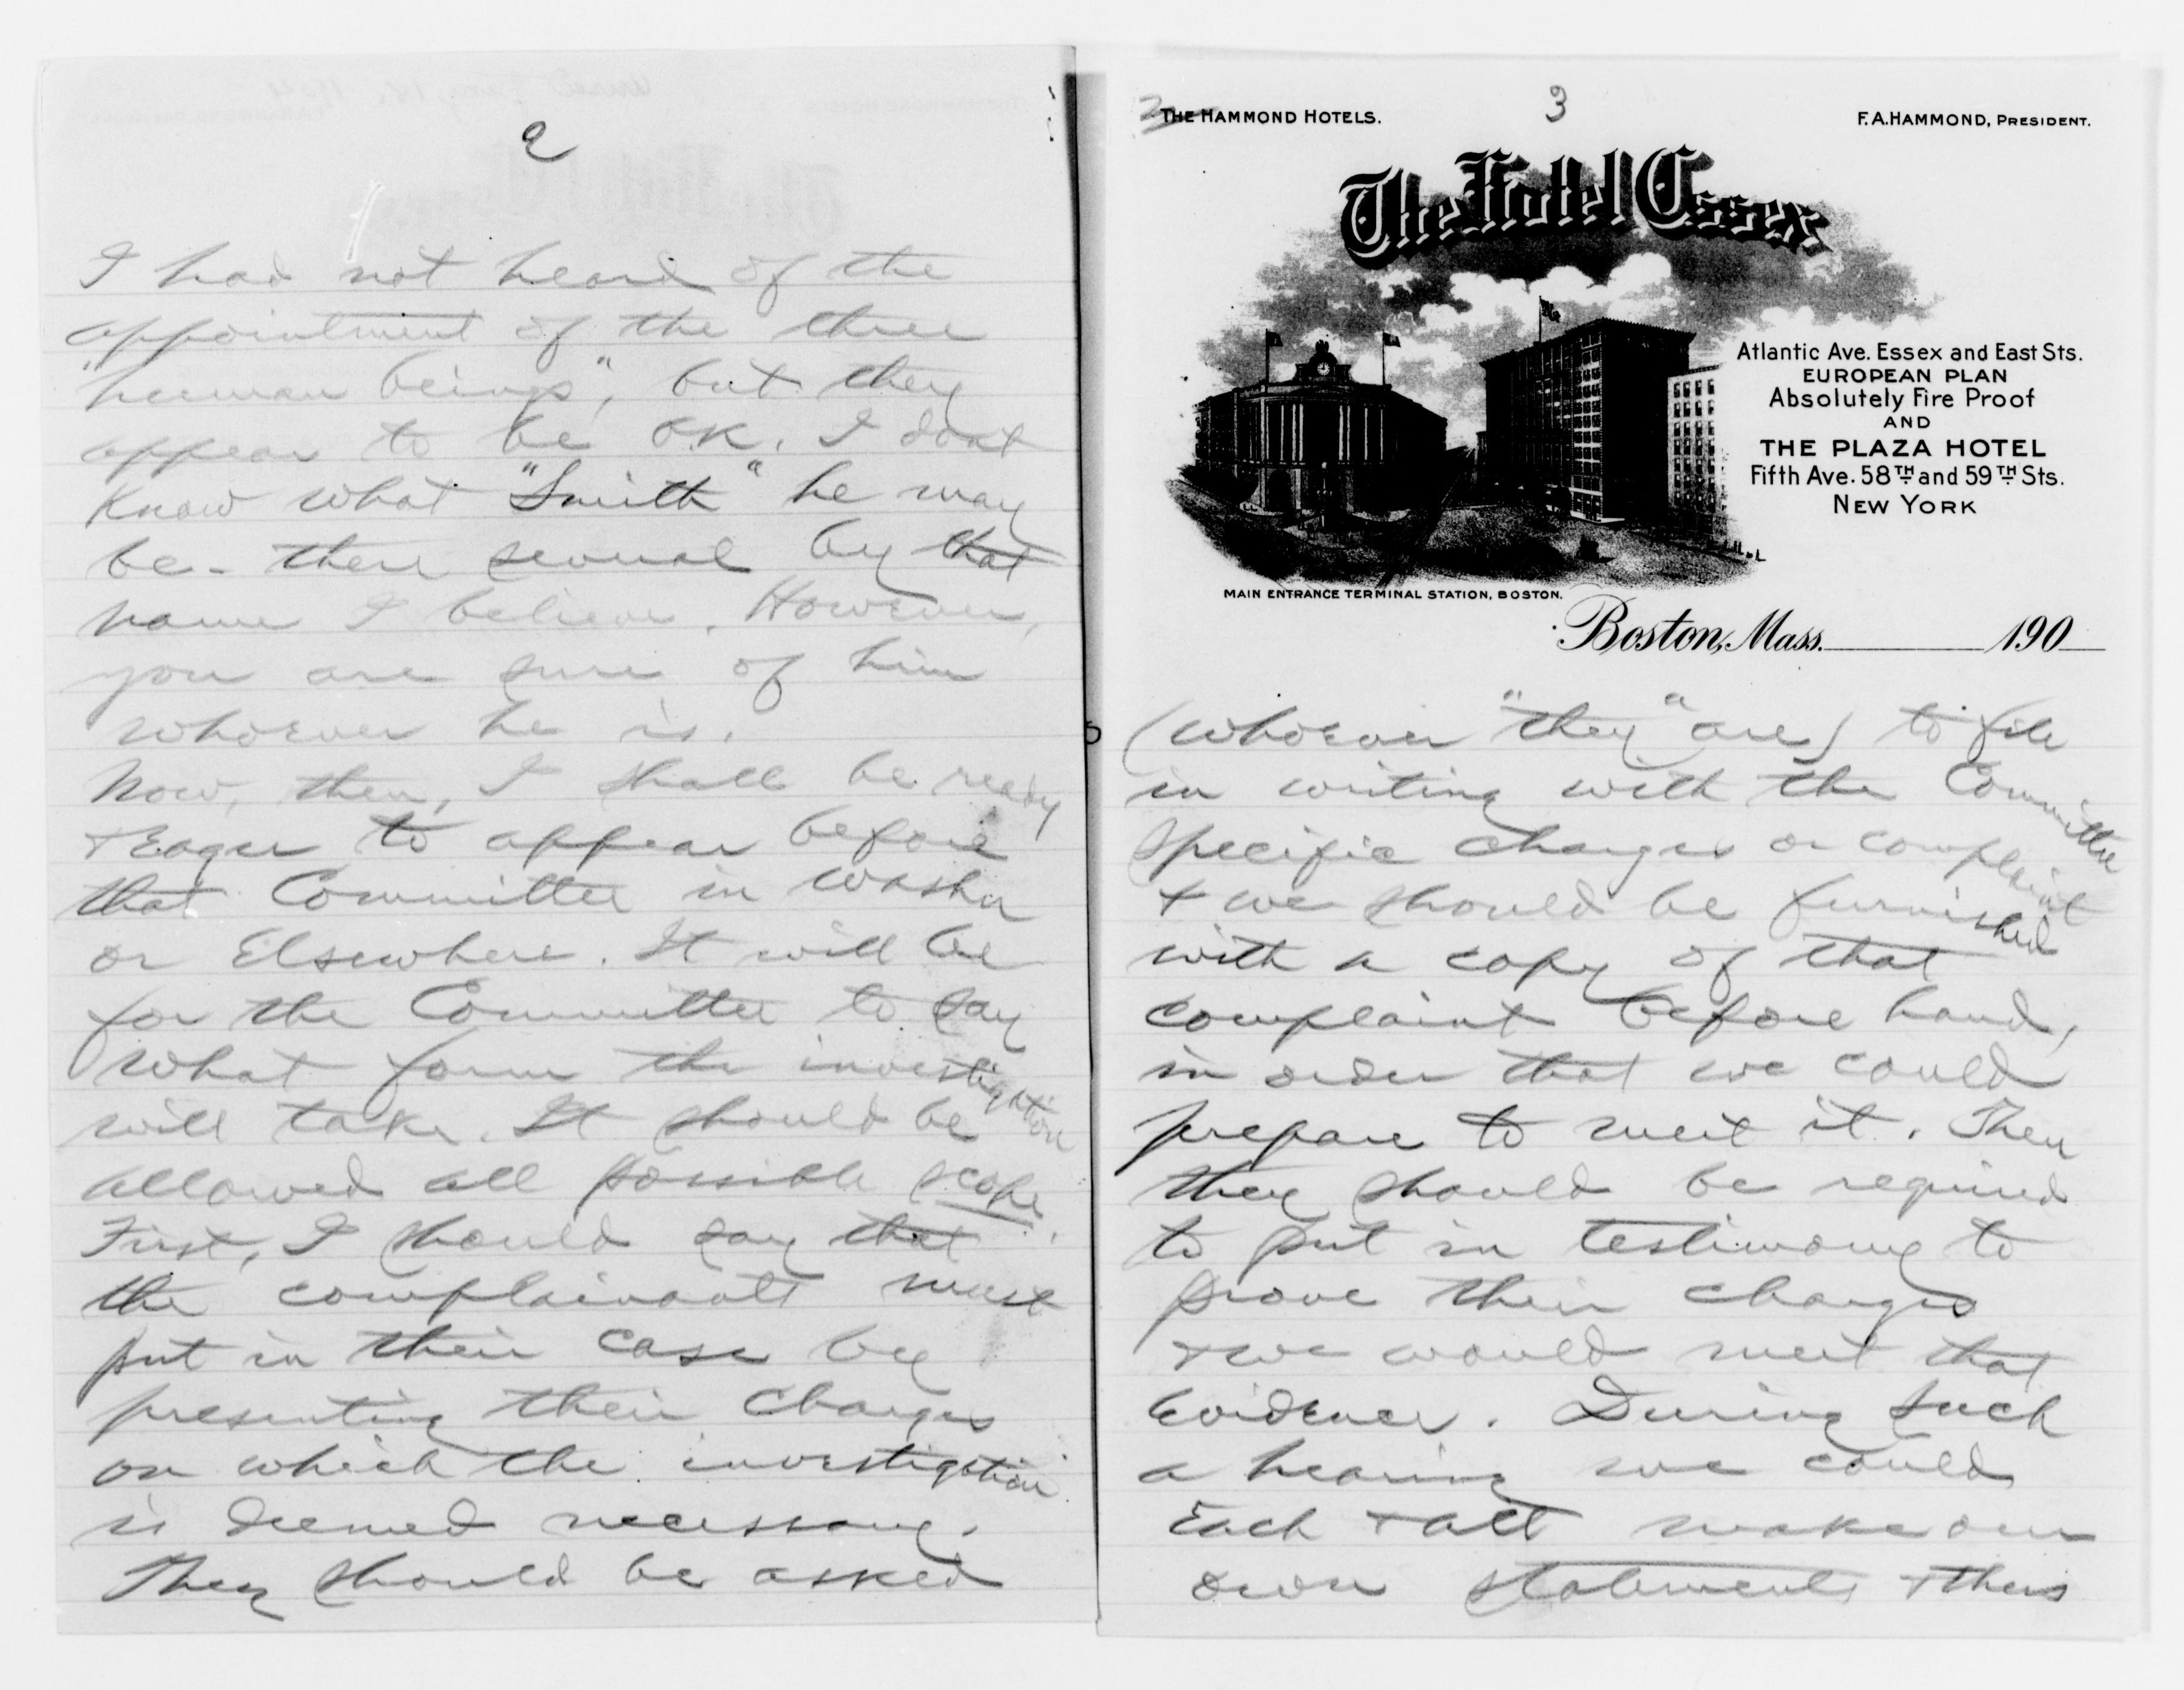 2
I had not heard of the
appointment of the three
"human beings", but they
appear to be OK. I dont
know what "Smith" he may
be - there several by that
name I believe. However,
you are sure of him
whoever he is.
Now, then, I shall be ready
+ Eager to appear before
that Committee in Washn
or Elsewhere. It will be
for the Committee to say
what form the investigation
will take. It should be
allowed all possible scope.
First, I should say that
the complainants must
put in their case by
presenting their charges
on which the investigation
is deemed necessary.
They should be asked
THE HAMMOND HOTELS.
3
F.A. HAMMOND, PRESIDENT.
The Hotel Essex
Atlantic Ave. Essex and East Sts.
EUROPEAN PLAN
Absolutely Fire Proof
AND
THE PLAZA HOTEL
Fifth Ave. 58TH and 59TH Sts.
NEW YORK
MAIN ENTRANCE TERMINAL STATION, BOSTON.
Boston, Mass. 190
(whoever "they" are) to file
in writing with the Committee
specific charges or complaint
+ we should be furnished
with a copy of that
complaint before hand,
in order that we could
prepare to meet it. Then
they should be required
to put in testimony to
prove their charges
+ we would meet that
Evidence. During such
a hearing we could
Each + all make our
own statements + thus